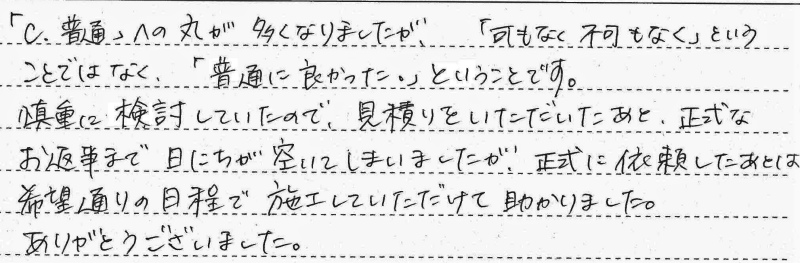 「C.普通」への丸が多くなりましたが、「可もなく不可もなく」という
ことではなく、「普通に良かった。」ということです。
慎重に検討していたので、見積りをいただいたあと、正式な
お返事まで日にちが空いてしまいましたが、正式に依頼したあとは
希望通りの日程で施工していただけて助かりました。
ありがとうございました。